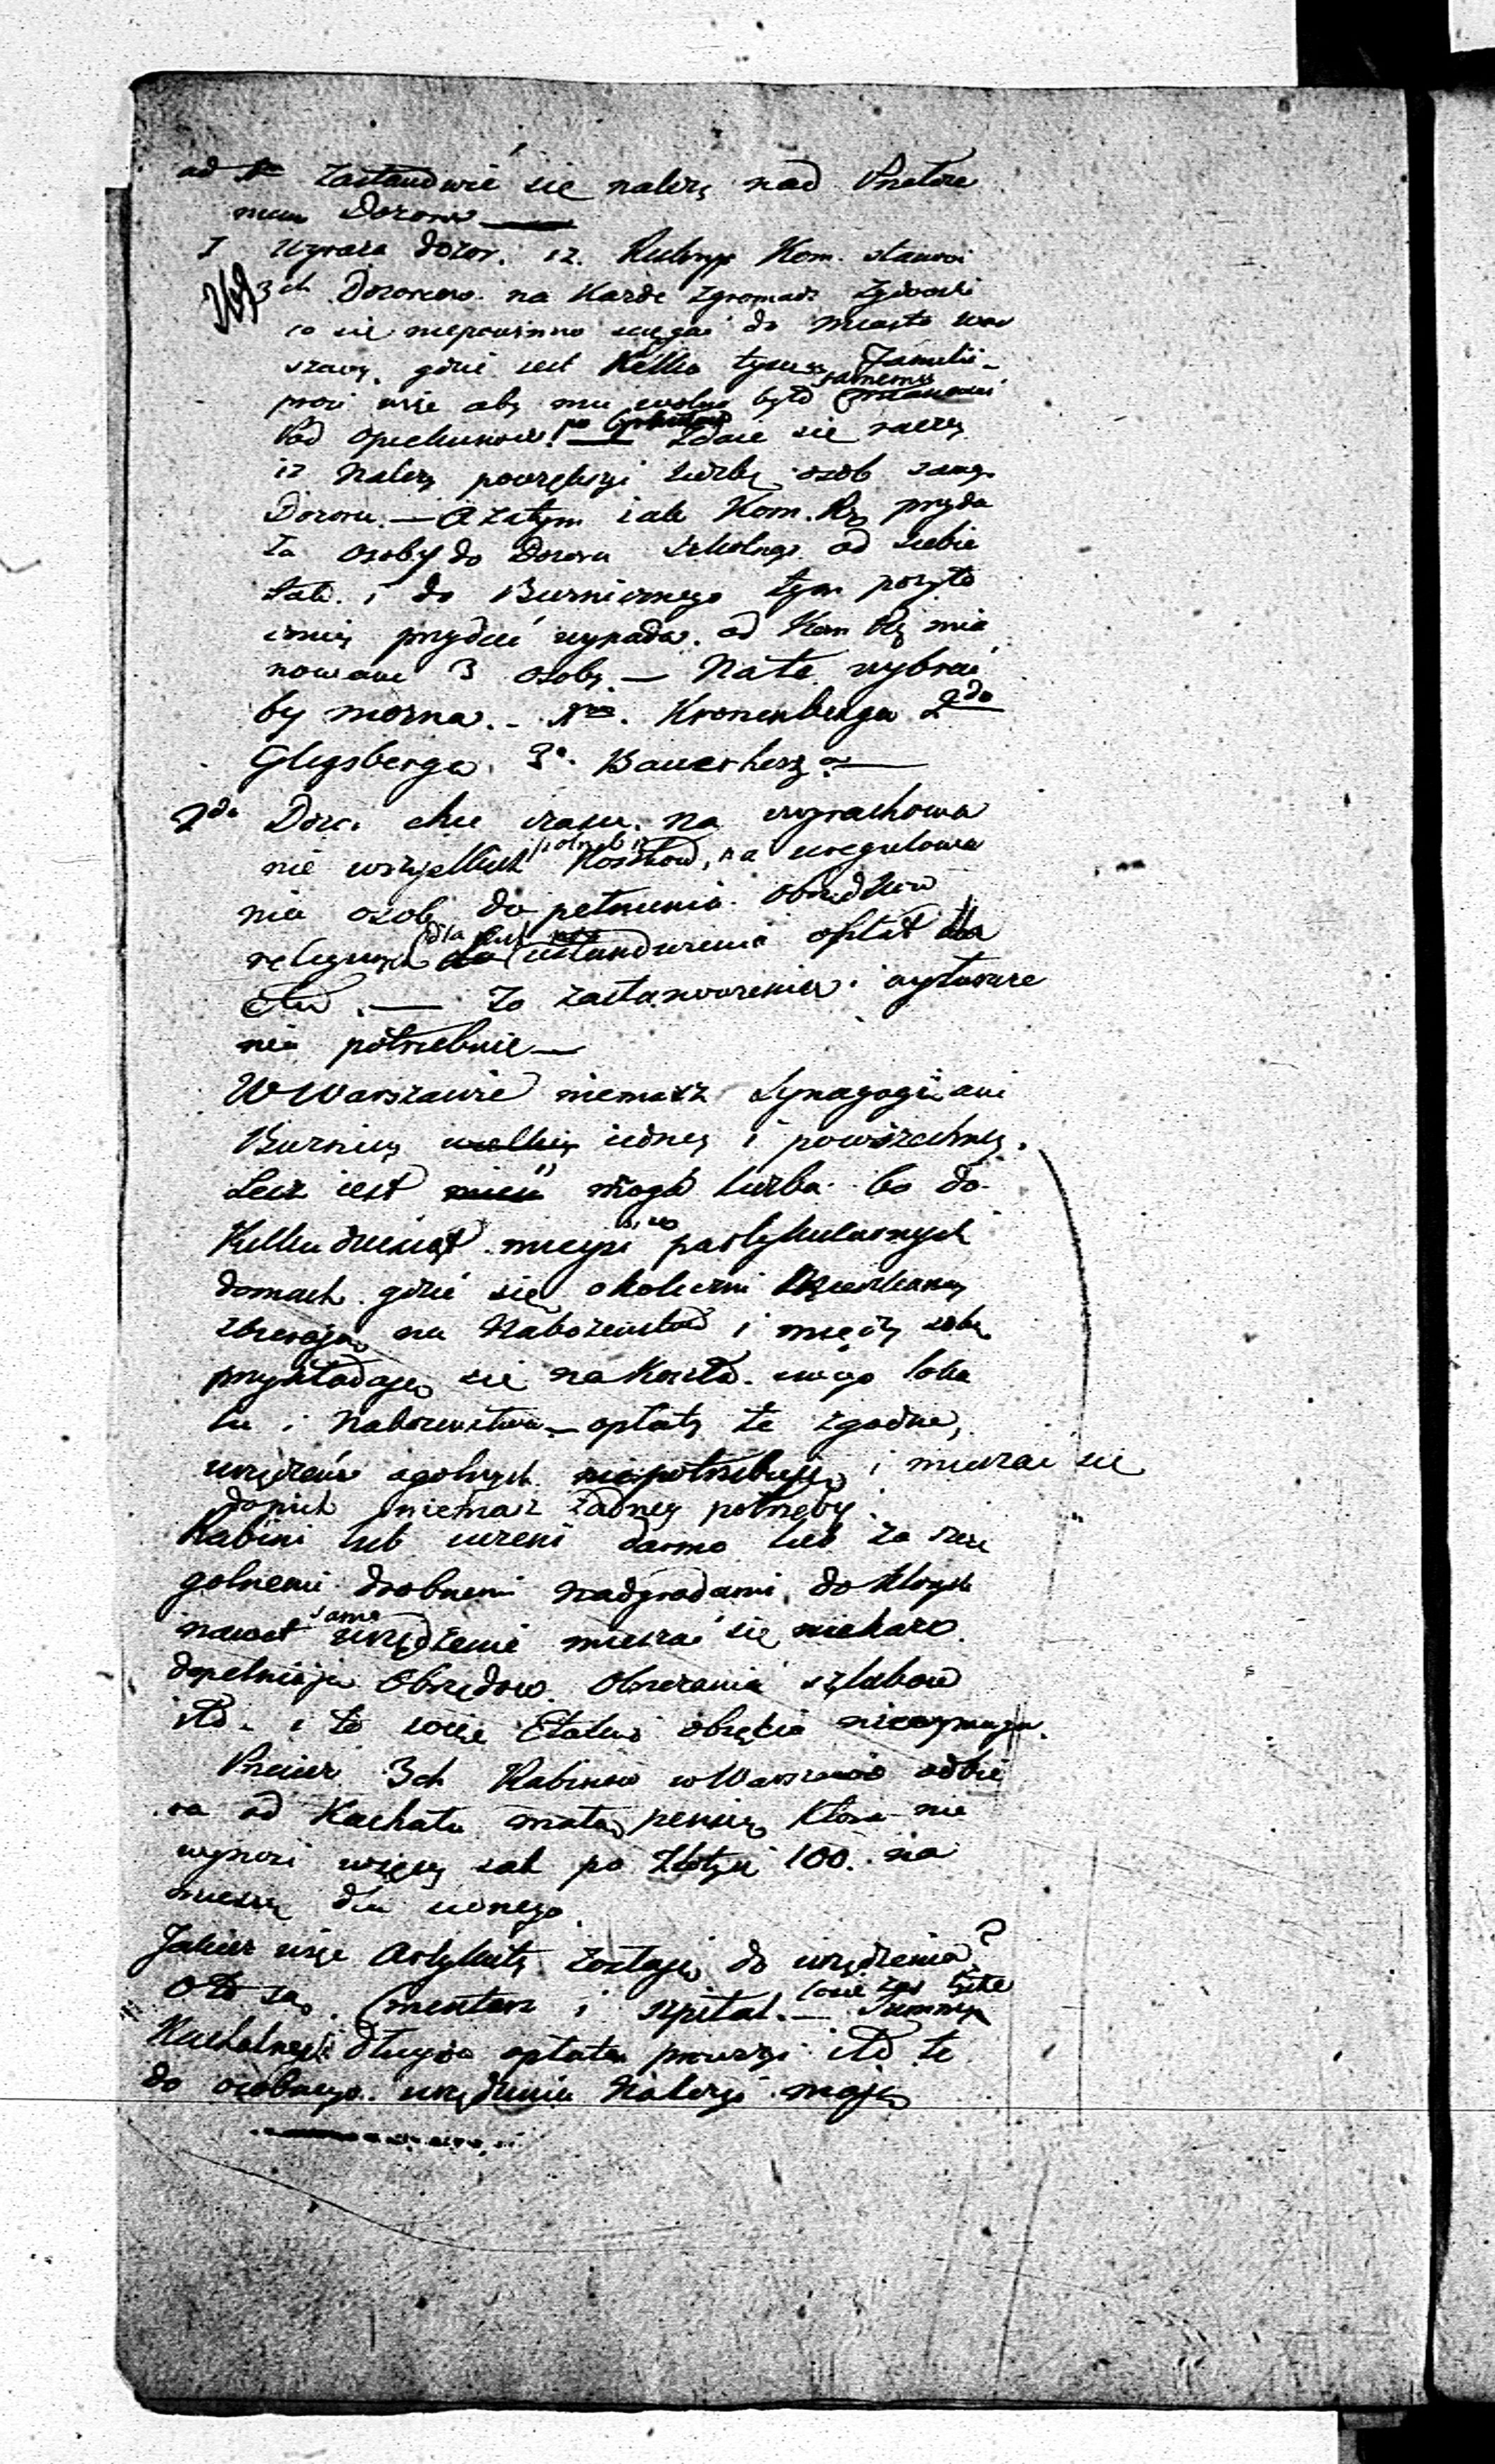 ad 1mo Zastanowić się należy nad
Dozoru —
I Dozor. iż Kom. stanowi
3ch Dozorców na każde Zgromadz Żydowski
co się niepowinno sciągać do miasta War
szawy, gdzie iest kilka tysięcy Familii —
prosi więc aby mu wolno było samemu
Pod opiekunow zdaie się raczey
iż należy powiększyć liczbę osob samego
Dozoru. — A zatym iak Kom. Rz. przyda
ła osoby do Dozoru Szkolnego od siebie
tak i do Burnicznego tym
przydać wypada od Kom Rz mia
nowane 3 osoby. — Na te wybrać
by można. — 1mo. Kronenberga 2do
Glygsberga. 3o. Bauerherz —
2do Dozor chce czasu na wyrachowa
nie wszystkich Kosztow, na uregulowa
nia osob do pełnienia obrządków
religiyn ustanowienia opłat dla
itd. — To zastanowienia i wytłumacze
nia potrzebuie —
W Warszawie niemasz Synagogi ani
Burnicy wielkiey iedney i powszechney.
Lecz iest mnoga liczba bo do
Kilkudziesiąt mieysc w partykularnych
domach gdzie się okoliczni mieszkancy
zbieraią na Nabożeństwo i między sobą
przykładaią się na koszta swego loka
lu i Nabożeństwa — opłaty te zgodne,
urządzeń ogolnych niepotrzebuią i mieszać się
do nich niemasz żadney potrzeby.
Rabini lub uczeni darmo lub za szcze
golnemi drobnemi nadgrodami, do ktorych
nawet samo urządzenie mieszać się niekaże
dopełniaią Obrzędow Obrzezania szlubow
itd. i to więc Etatem obięcia niewymaga.
Przeciez 3ch Rabinow w Warszawie odbie
ra od Kachału małą pensię ktora nie
wynosi więcey iak po Złotych 100. na
miesiąc dla iednego.
Jakież więc Artykuły zostaią do urządzenia?
Oto są, Cmentarz i szpital. —
Kachalnych długow opłata procesy itd te
do osobnego urządzenia należyć maią